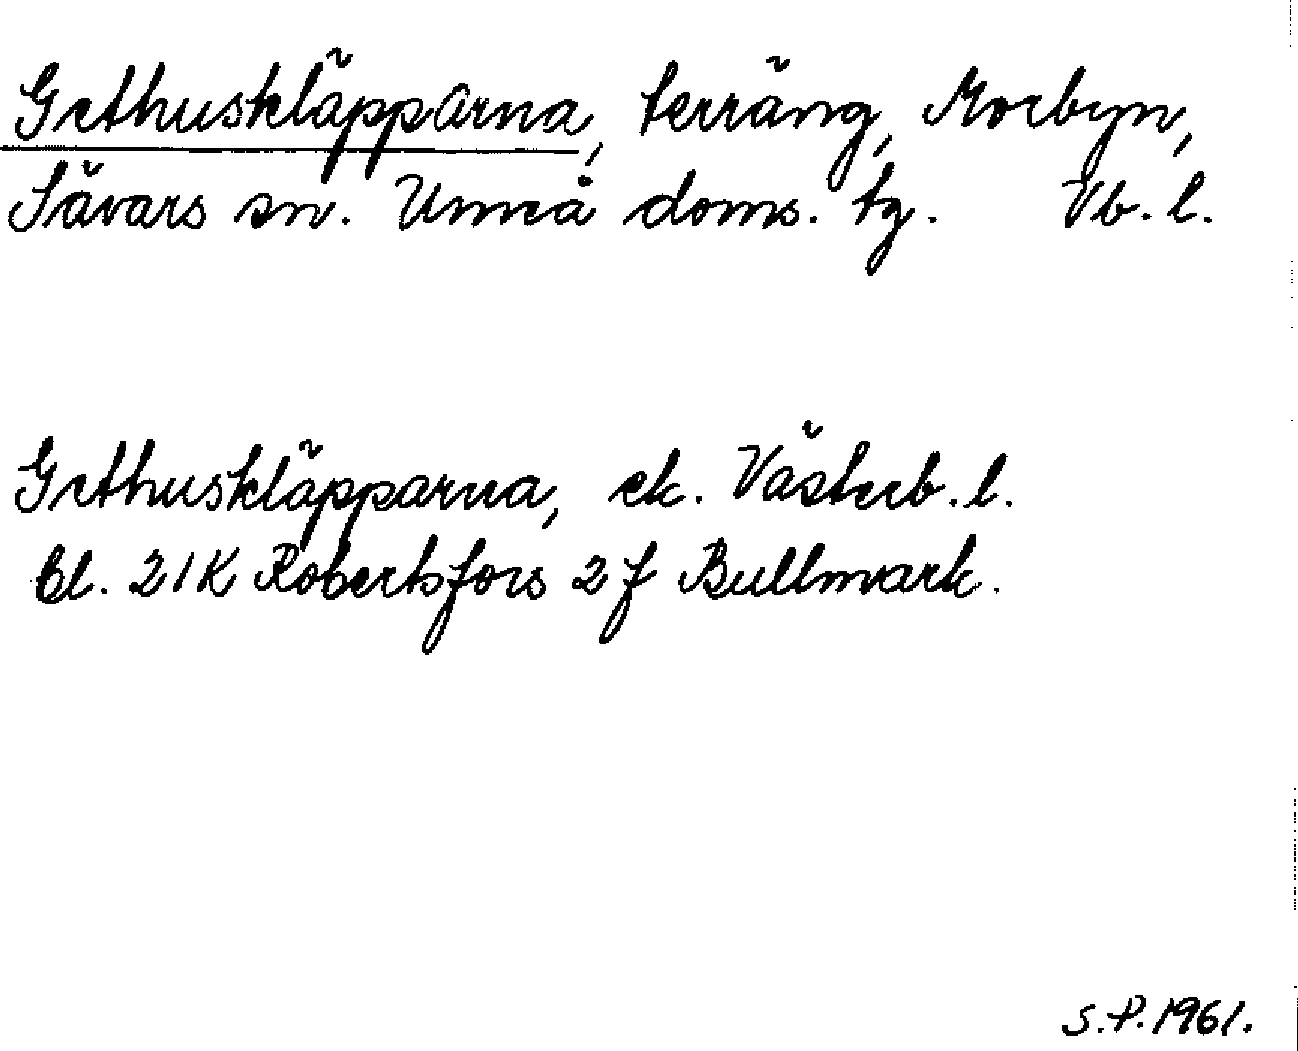 Gethuskläpparna, terräng, Morbyn,
Sävars sn. Umeå doms. tg. Vb. l.
Gethuskläpparna, ek. Västerb. l.
bl. 21K Robertsfors 2f Bullmark.
S.P. 1961.